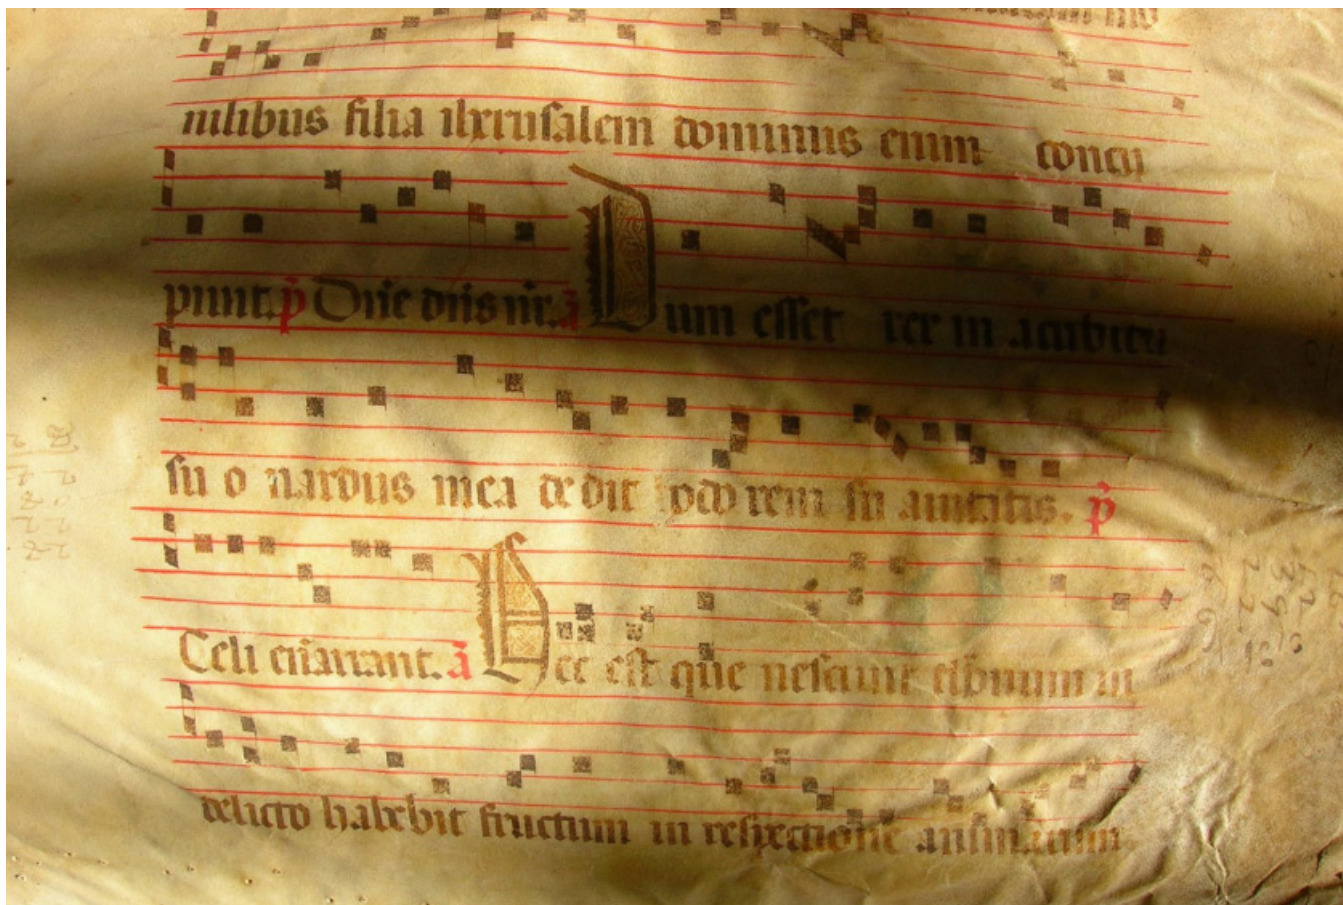 nilibus filia iherusalem dominus enim concu
piuit. p̃ Dñe dñs nr̃. ã Dum esset rex in acubitu
su o nardus mea de dit hodo rem su auitatis. p̃
Celi eñarrant. ã Hec est que nesciuit thorum in
delicto habebit fructum in respectione animarum